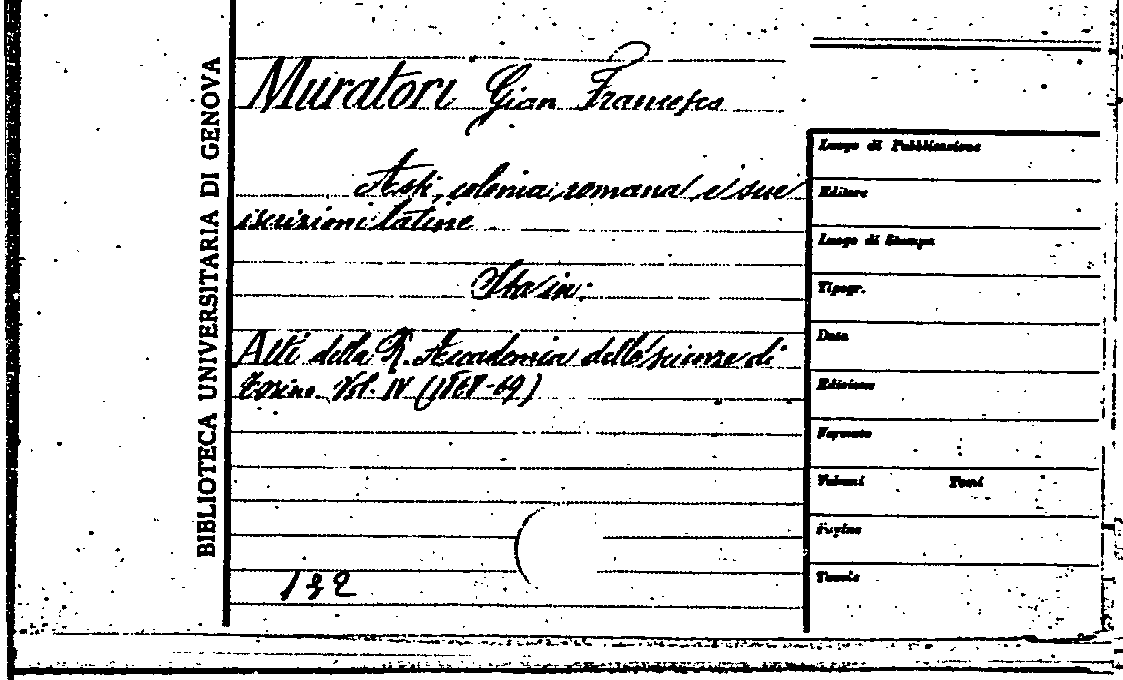 BIBLIOTECA UNIVERSITARIA DI GENOVA
Muratori Gian Francesco
Asti, colonia romana e sue
iscrizioni latine
Sta in:
Atti della R. Accademia delle scienze di
Torino. Vol. IV (1868-69)
132
Luogo di Pubblicazione
Editore
Luogo di Stampa
Tipogr.
Data
Edizione
Formato
Volumi Tomi
Pagine
Tavole